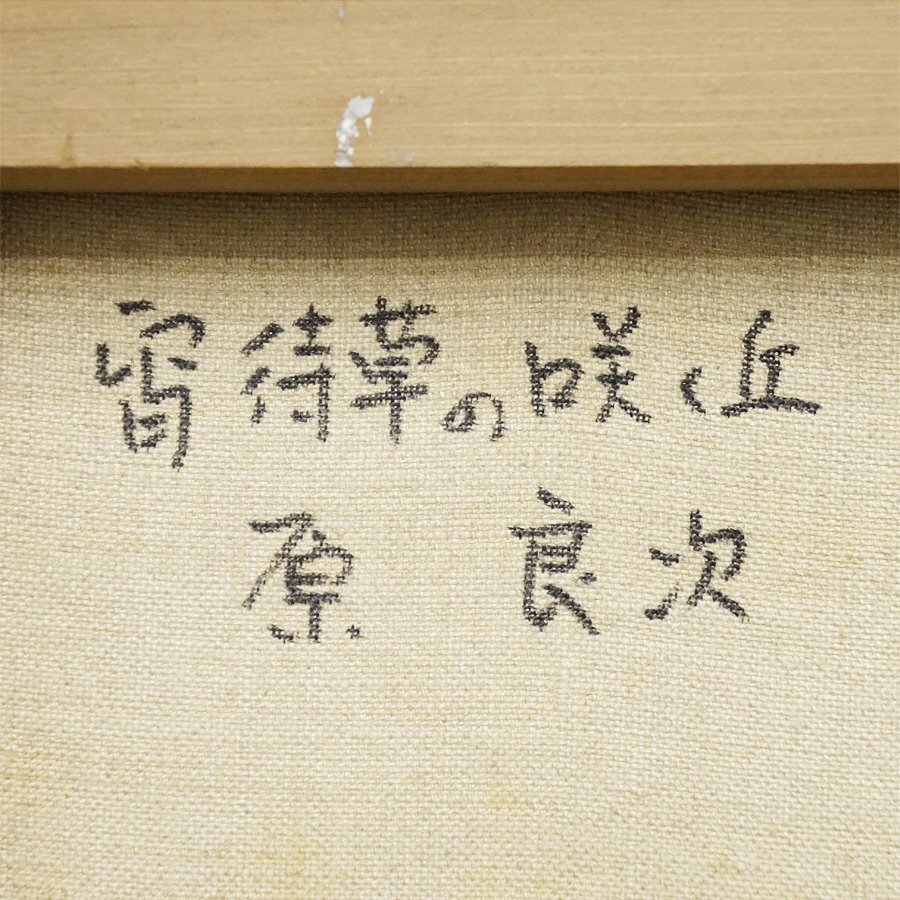 宵待草の咲く丘
原 良次